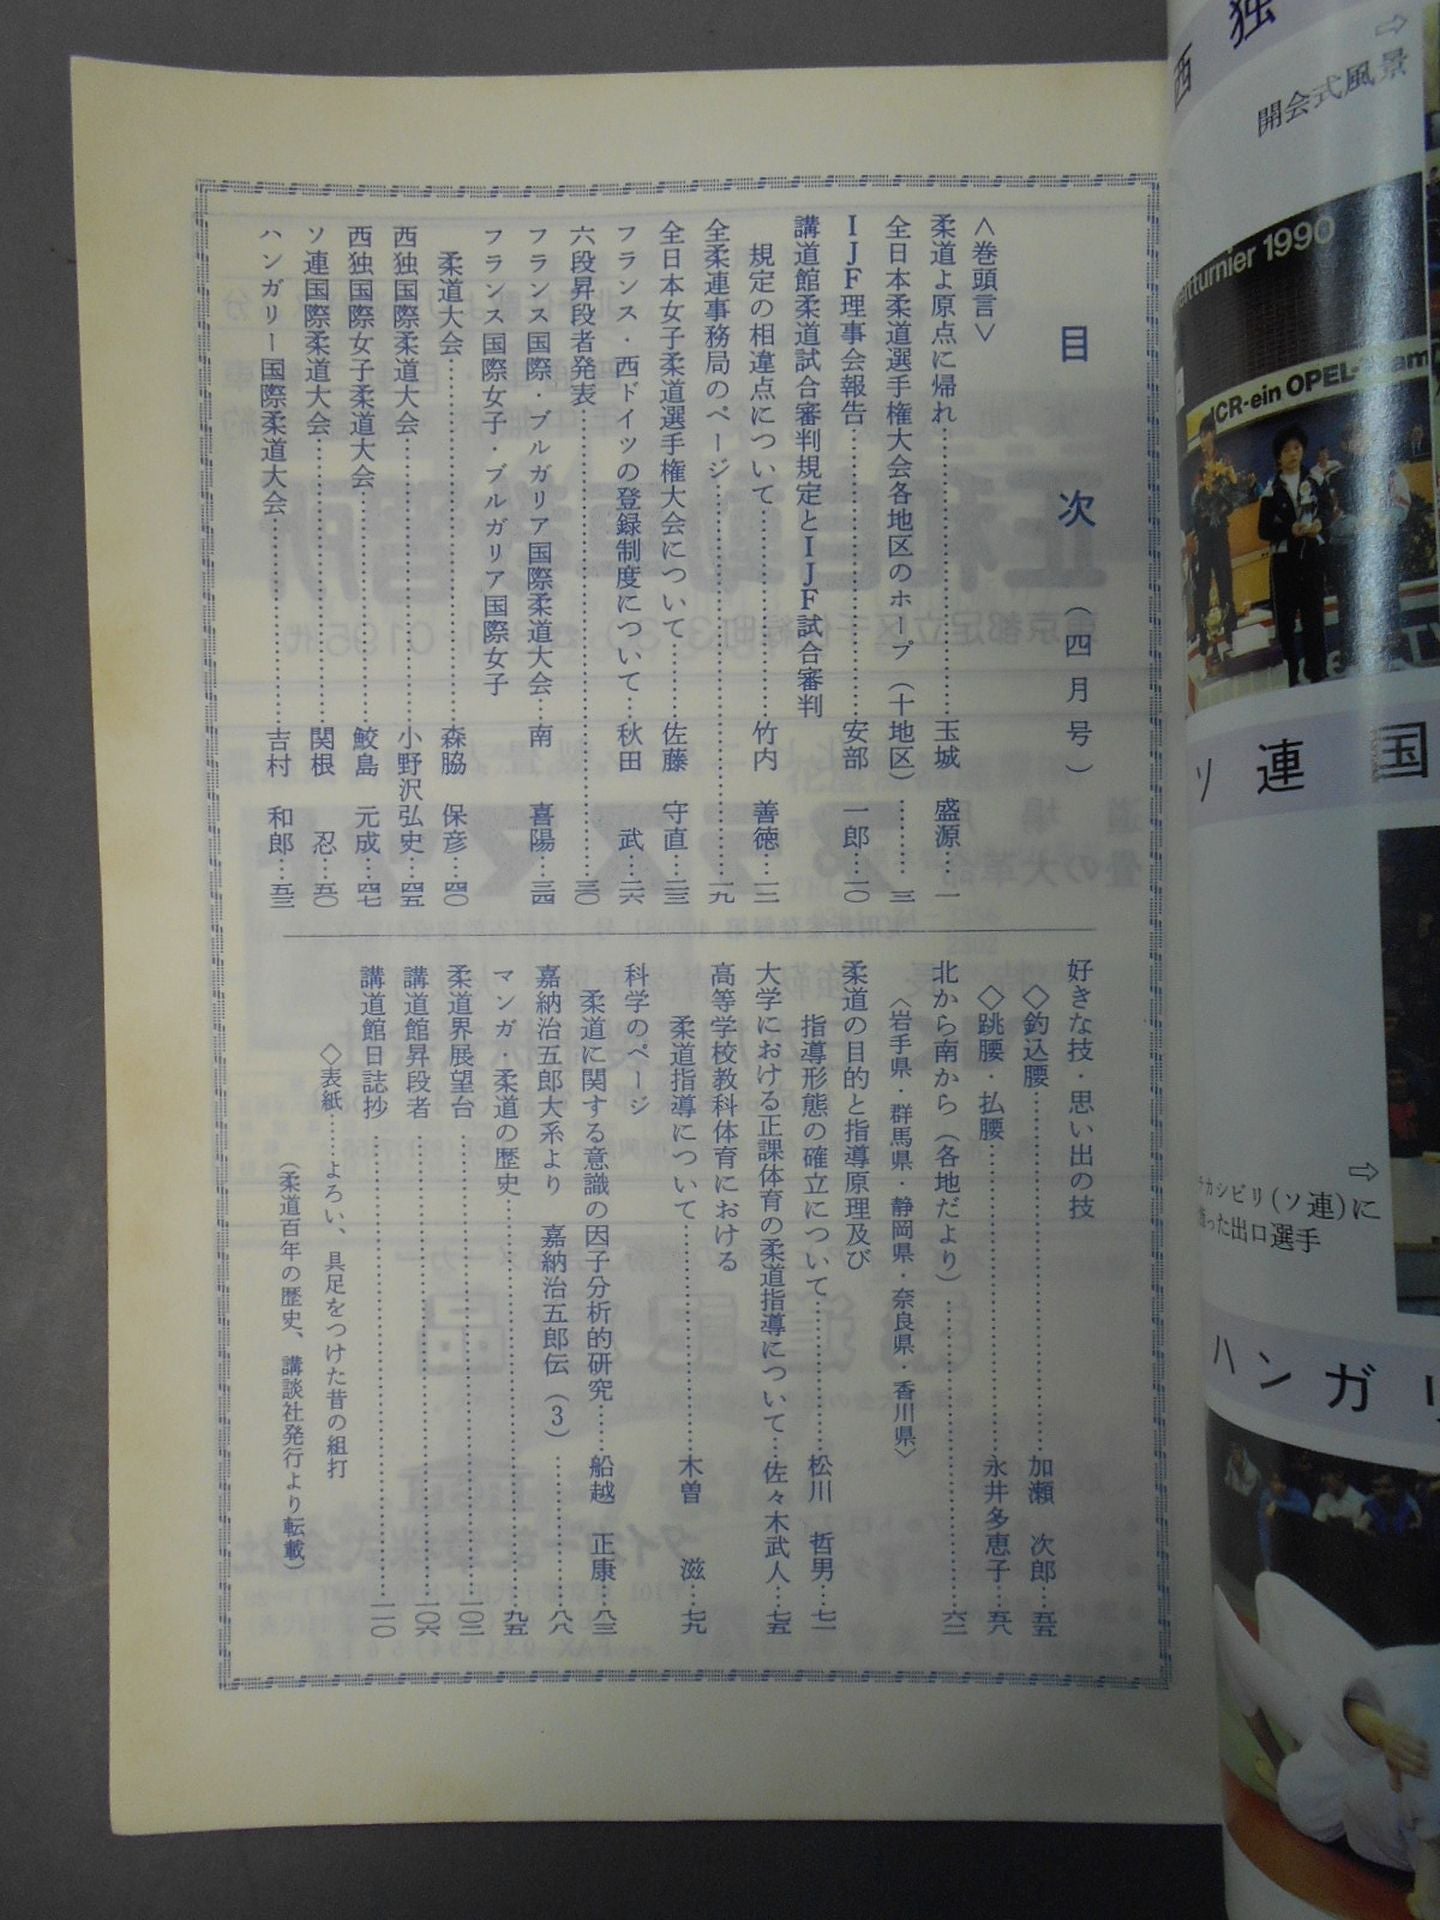 目次（四月号）
＜巻頭言＞
柔道よ原点に帰れ……玉城　盛源…一
全日本柔道選手権大会各地区のホープ（十地区）……三
ＩＪＦ理事会報告……安部　一郎…一〇
講道館柔道試合審判規定とＩＪＦ試合審判
規定の相違点について……竹内　善徳…一二
全柔連事務局のページ……一九
全日本女子柔道選手権大会について……佐藤　守直…二三
フランス・西ドイツの登録制度について…秋田　武…二六
六段昇段者発表……三〇
フランス国際・ブルガリア国際柔道大会…南　喜陽…三四
フランス国際女子・ブルガリア国際女子
柔道大会……森脇　保彦…四〇
西独国際柔道大会……小野沢弘史…四五
西独国際女子柔道大会……鮫島　元成…四七
ソ連国際柔道大会……関根　忍…五〇
ハンガリー国際柔道大会……吉村　和郎…五三
好きな技・思い出の技
◇釣込腰……加瀬　次郎…五五
◇跳腰・払腰……永井多恵子…五八
北から南から（各地だより）……六二
〈岩手県・群馬県・静岡県・奈良県・香川県〉
柔道の目的と指導原理及び
指導形態の確立について……松川　哲男…七一
大学における正課体育の柔道指導について…佐々木武人…七五
高等学校教科体育における
柔道指導について……木曽　滋…七九
科学のページ
柔道に関する意識の因子分析的研究……船越　正康…八三
嘉納治五郎大系より　嘉納治五郎伝（3）……八八
マンガ・柔道の歴史……九五
柔道界展望台……一〇二
講道館昇段者……一〇六
講道館日誌抄……一一〇
◇表紙……よろい、具足をつけた昔の組打
（柔道百年の歴史、講談社発行より転載）
西独
⇨
開会式風景
turnier 1990
CR-ein OPEL-
ソ連国
⇨
カシビリ（ソ連）に
った出口選手
ハンガリ